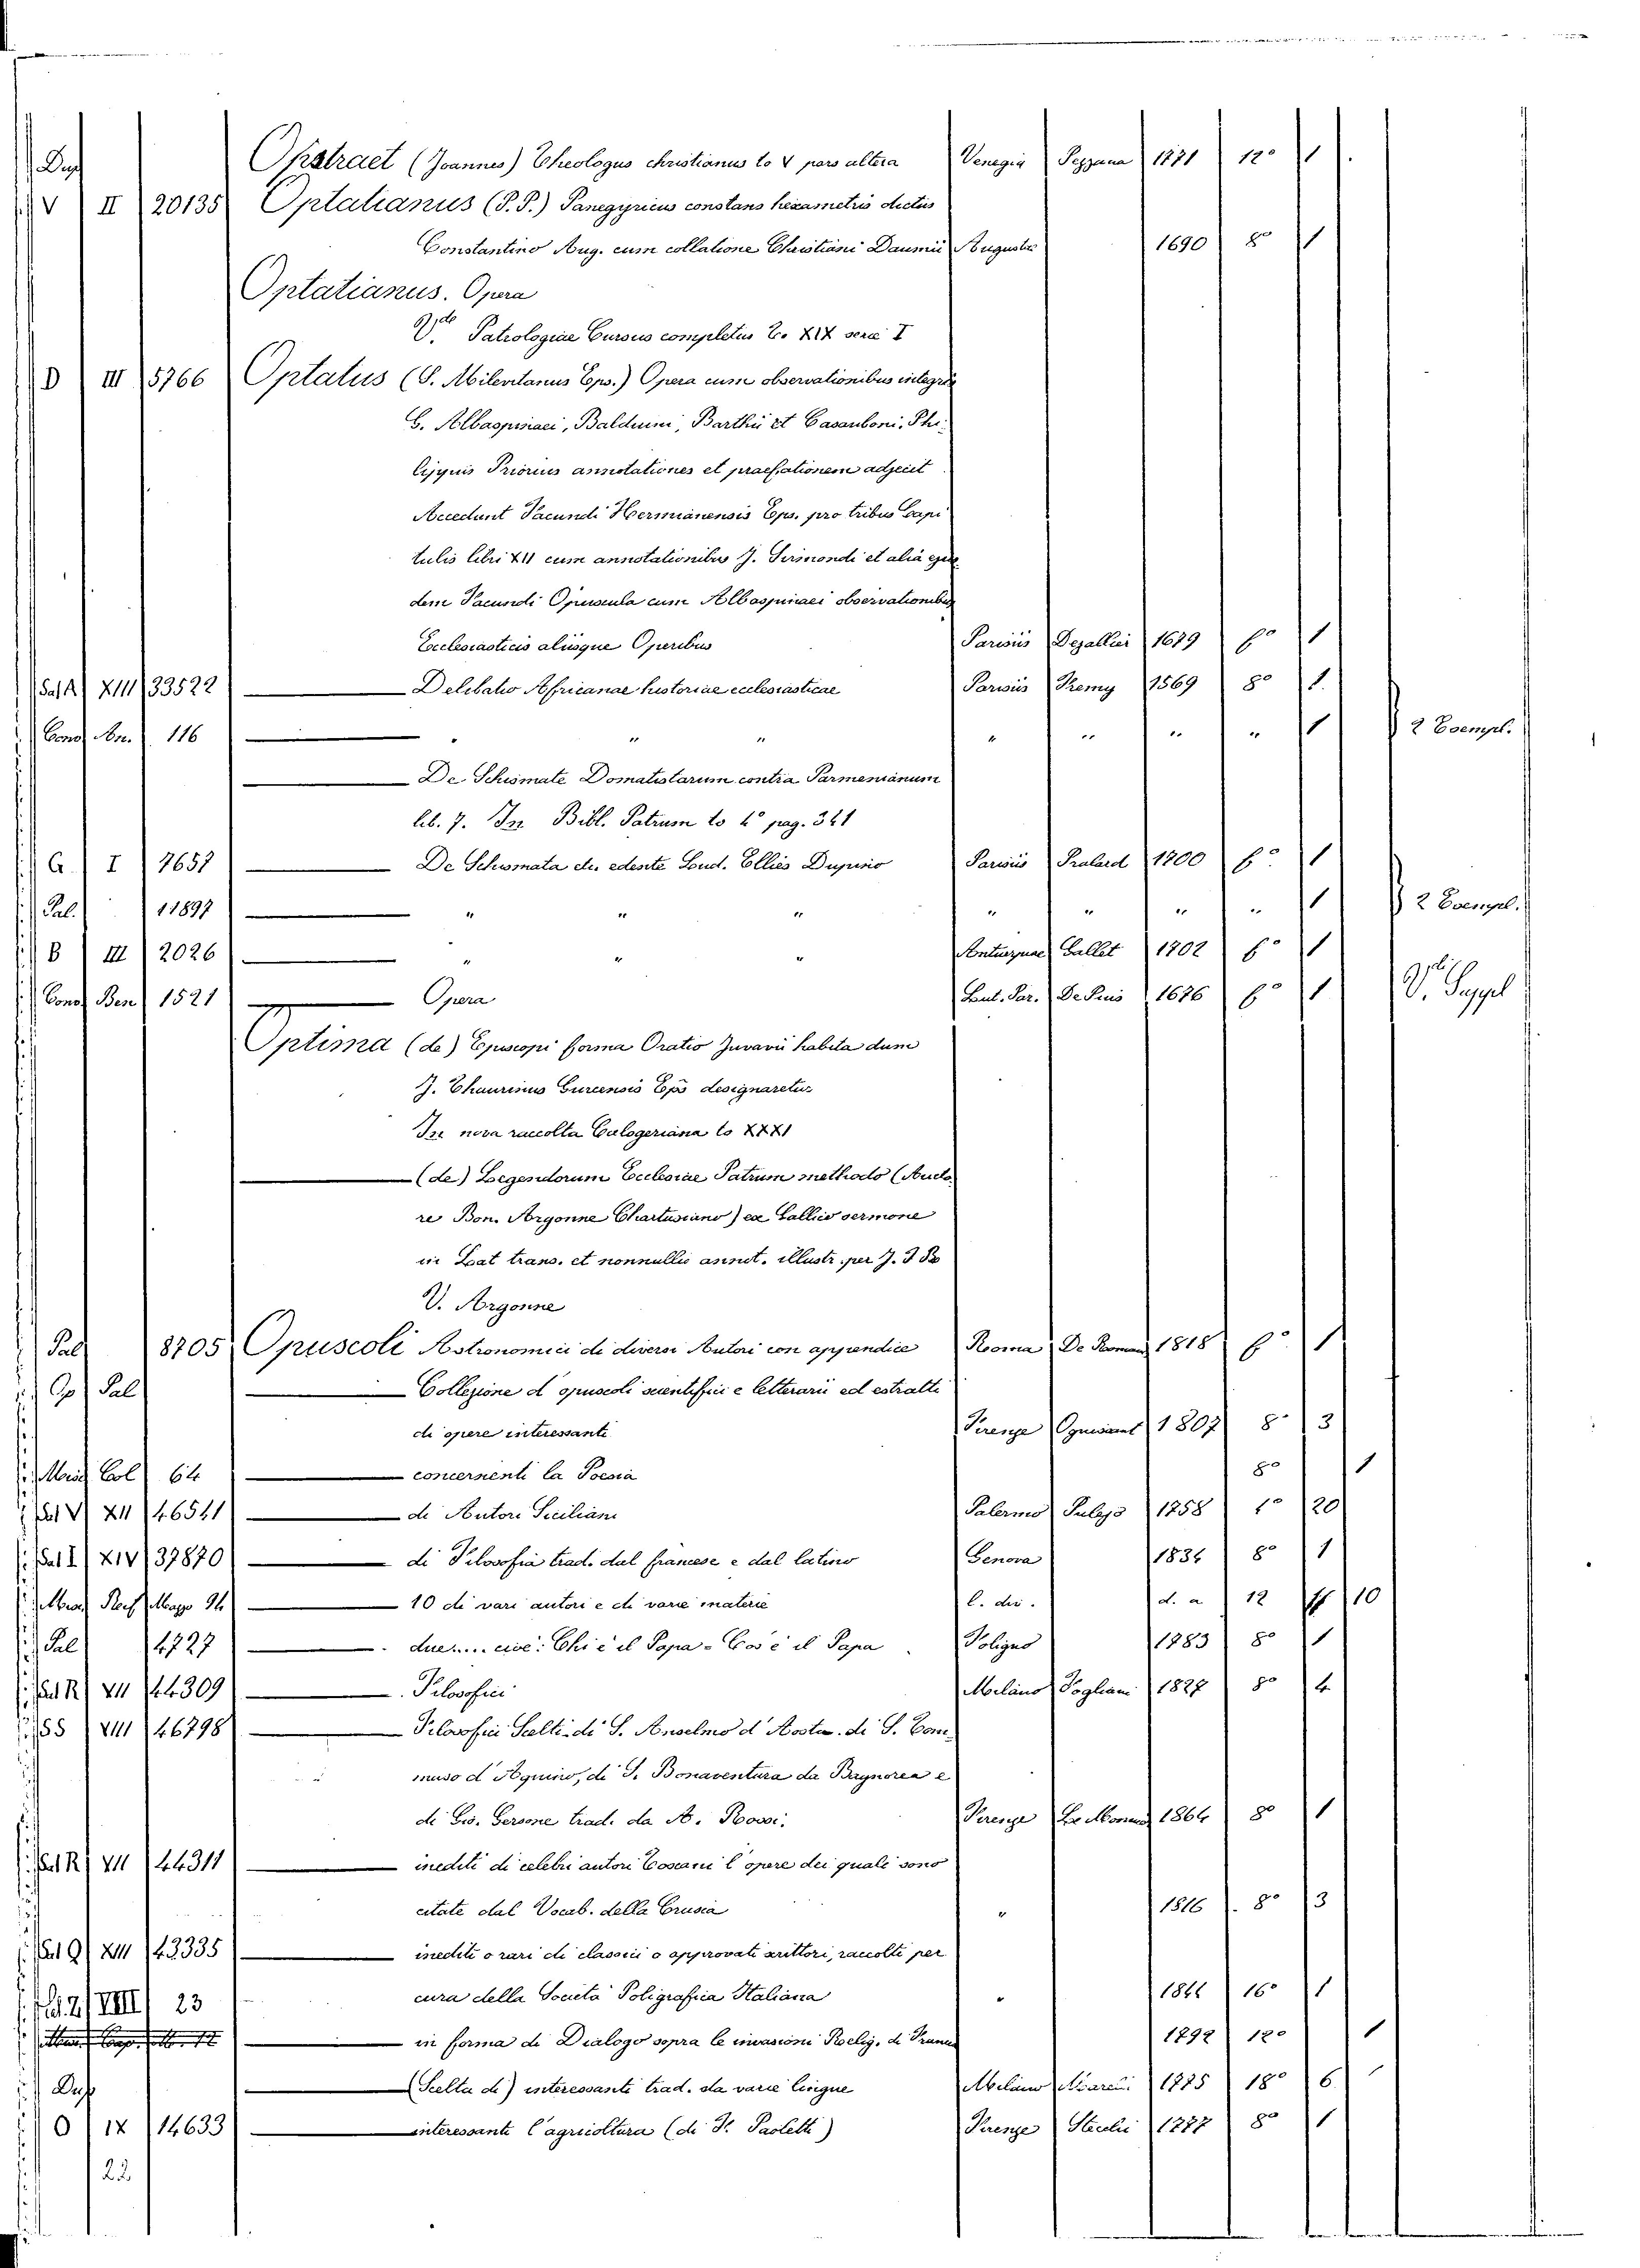 Dup Opstraet (Joannes) Theologus christianus to V pars altera Venezia Pezzana 1771 12° 1
V II 20135 Optatianus (P.P.) Panegyricus constans hexametris dictus
Constantino Aug. cum collatione Christiani Daumii Augustae 1690 8° 1
Optatianus. Opera
V.de Patrologiae Cursus completus to XIX serie I
D III 5766 Optatus (S. Milevitanus Eps.) Opera cum observationibus integris
G. Albaspinaei, Balduini, Barthii et Casauboni. Phi
lippuis Priorius annotationes et praefationem adjecit
Accedunt Facundi Hermianensis Eps. pro tribus Capi
tulis libri XII cum annotationibus J. Sirmondi et alia ejus
dem Facundi Opuscula cum Albaspinaei observationibus
Ecclesiasticis aliisque Operibus Parisiis Dezallier 1679 f° 1
Sal A XIII 33522 Delibatio Africanae historiae ecclesiasticae Parisiis Fremy 1569 8° 1.
Cons An. 116 " " " " " " 1 2 Esempl.
De Schismate Domatistarum contra Parmenianum
lib. 7. In Bibl. Patrum to 4° pag. 341
G. I 7657 De Schismata etc. edente Lud. Ellies Dupinio Parisiis Pralard 1700 f° 1
Pal. 11897 " " " " " " " 1 2 Esempl.
B III 2026 " " " Antuerpiae Gallet 1702 f° 1
Cons Ben 1521 Opera Lut. Par. De Puis 1676 f° 1 V. Suppl
Optima (de) Episcopi forma Oratio Juvavii habita dum
J. Thaurinus Gurcensis Eps designaretur
In nova raccolta Calogeriana to XXXI
(de) Legendorum Ecclesiae Patrum methodo (Aucto
re Bon. Argonne Chartusiano) ex Gallico sermone
in Lat trans. et nonnullis annot. illustr. per J.
V. Argonne
Pal 8705 Opuscoli Astronomici di diversi Autori con appendice Rooma De Roman 1818 f° 1
Op Pal Collezione d'opuscoli scientifici e letterarii ed estratti
di opere interessanti Firenze 1807 8° 3
Misc Col 64 concernenti la Poesia 8° 1
Sal V XII 46541 di Autori Siciliani Palermo Pulejo 1758 4° 20
Sal I XIV 37870 di Filosofia trad. dal francese e dal latino Genova 1834 8° 1
10 di vari autori e di varie materie l. div. d. a 12 10
Pal 4727 due.... cioè: Chi è il Papa - Cos'è il Papa. Foligno 1783 8° 1
Sal R VII 44309 Filosofici Milano Fogliani 1827 8° 4
SS VIII 46798 Filosofici Scelti di S. Anselmo d'Aosta. di S. Tom
maso d'Aquino, di S. Bonaventura da Bagnorea e
di Gio. Gersone trad. da A. Rossi. Firenze Le Monnier 1864 8° 1
Sal R VII 44311 inediti di celebri autori Toscani l'opere dei quali sono
citate dal Vocab. della Crusca " 1816 8° 3
Sal Q XIII 43335 inediti o rari di classici o approvati scrittori, raccolti per
cura della Società Poligrafica Italiana " 1844 16° 1
23
in forma di Dialogo sopra le invasioni Relig. di Francia 1792 12° 1
Dup (Scelta di) interessanti trad. da varie lingue Milano Marelli 1775 18° 6
O IX 14633 interessanti l'agricoltura (di F. Paoletti) Firenze Stecchi 1787 8° 1
22